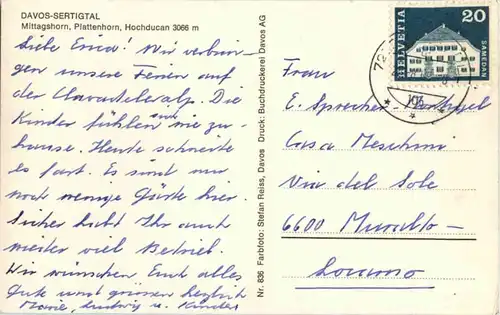 DAVOS-SERTIGTAL
Mittagshorn, Plattenhorn, Hochducan 3066 m
Liebe Erica! Wir verbrin-
gen unsere Ferien auf
der Clavadeleralp. Die
Kinder fühlen sich wie zu-
hause. Heute schneite
es fast. Es sind nur
noch wenige Gäste hier.
Sicher habt Ihr auch
wieder viel Betrieb.
Wir wünschen Euch alles
Gute und grüssen herzlich
Marie, Ludwig u. Kinder
Nr. 836 Farbfoto: Stefan Reiss, Davos Druck: Buchdruckerei Davos AG
HELVETIA
20
SAMEDAN
Frau
E. Sprecher-
Casa Meschini
Via del Sole
6600 Muralto-
Locarno